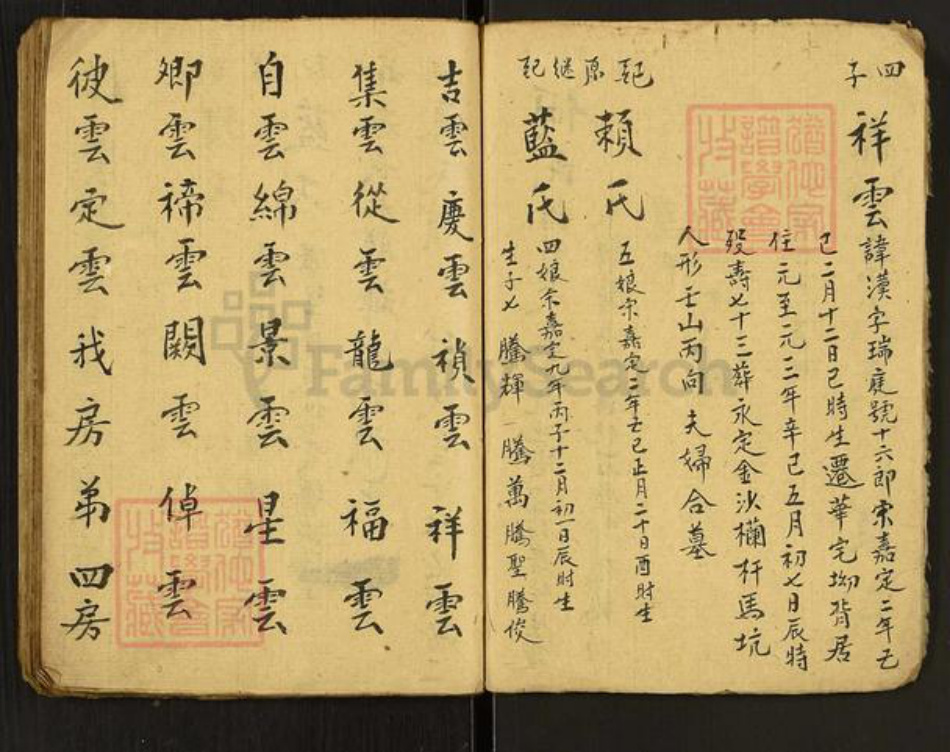 四子
祥雲諱漢字瑞庭號十六郎宋嘉定二年己
己二月十二日巳時生遷華宅坳背居
住元至元三年辛己五月初七日辰時
殁壽七十三葬永定金沙欄杆馬坑
人形壬山丙向夫婦合墓
妣賴氏五娘宋嘉定二年己巳正月二十日酉时生
原继妣藍氏四娘宋嘉定九年丙子十二月初一日辰时生
生子七 騰輝 騰萬騰聖騰俊
吉雲慶雲禎雲祥雲
集雲從雲龍雲福雲
自雲綿雲景雲星雲
卿雲禘雲闕雲倬雲
彼雲定雲我房弟四房
譜學會
收藏
FamilySearch